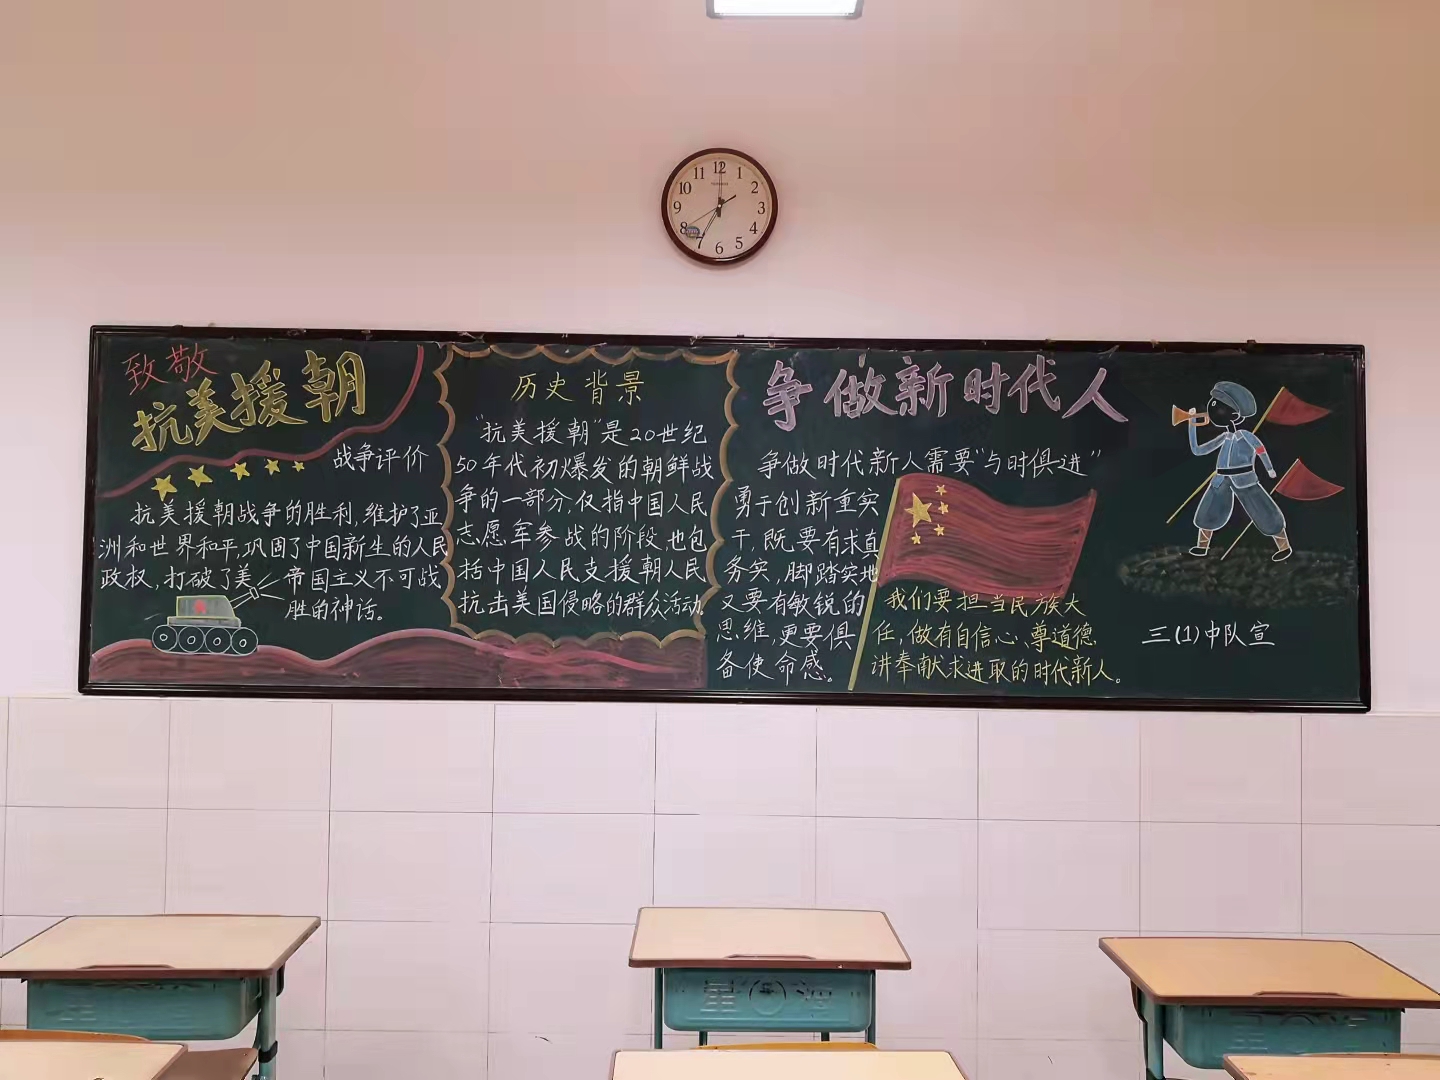 12
1
2
3
4
5
6
7
8
9
10
11
致敬
抗美援朝
战争评价
抗美援朝战争的胜利,维护了亚
洲和世界和平,巩固了中国新生的人民
政权,打破了美帝国主义不可战
胜的神话。
历史背景
"抗美援朝"是20世纪
50年代初爆发的朝鲜战
争的一部分,仅指中国人民
志愿军参战的阶段,也包
括中国人民支援朝人民
抗击美国侵略的群众活动。
争做新时代人
争做时代新人需要"与时俱进"
勇于创新重实
干,既要有求真
务实,脚踏实地
又要有敏锐的
思维,更要俱
备使命感。
我们要担当民族大
任,做有自信心、尊道德
讲奉献求进取的时代新人。
三(1)中队宣